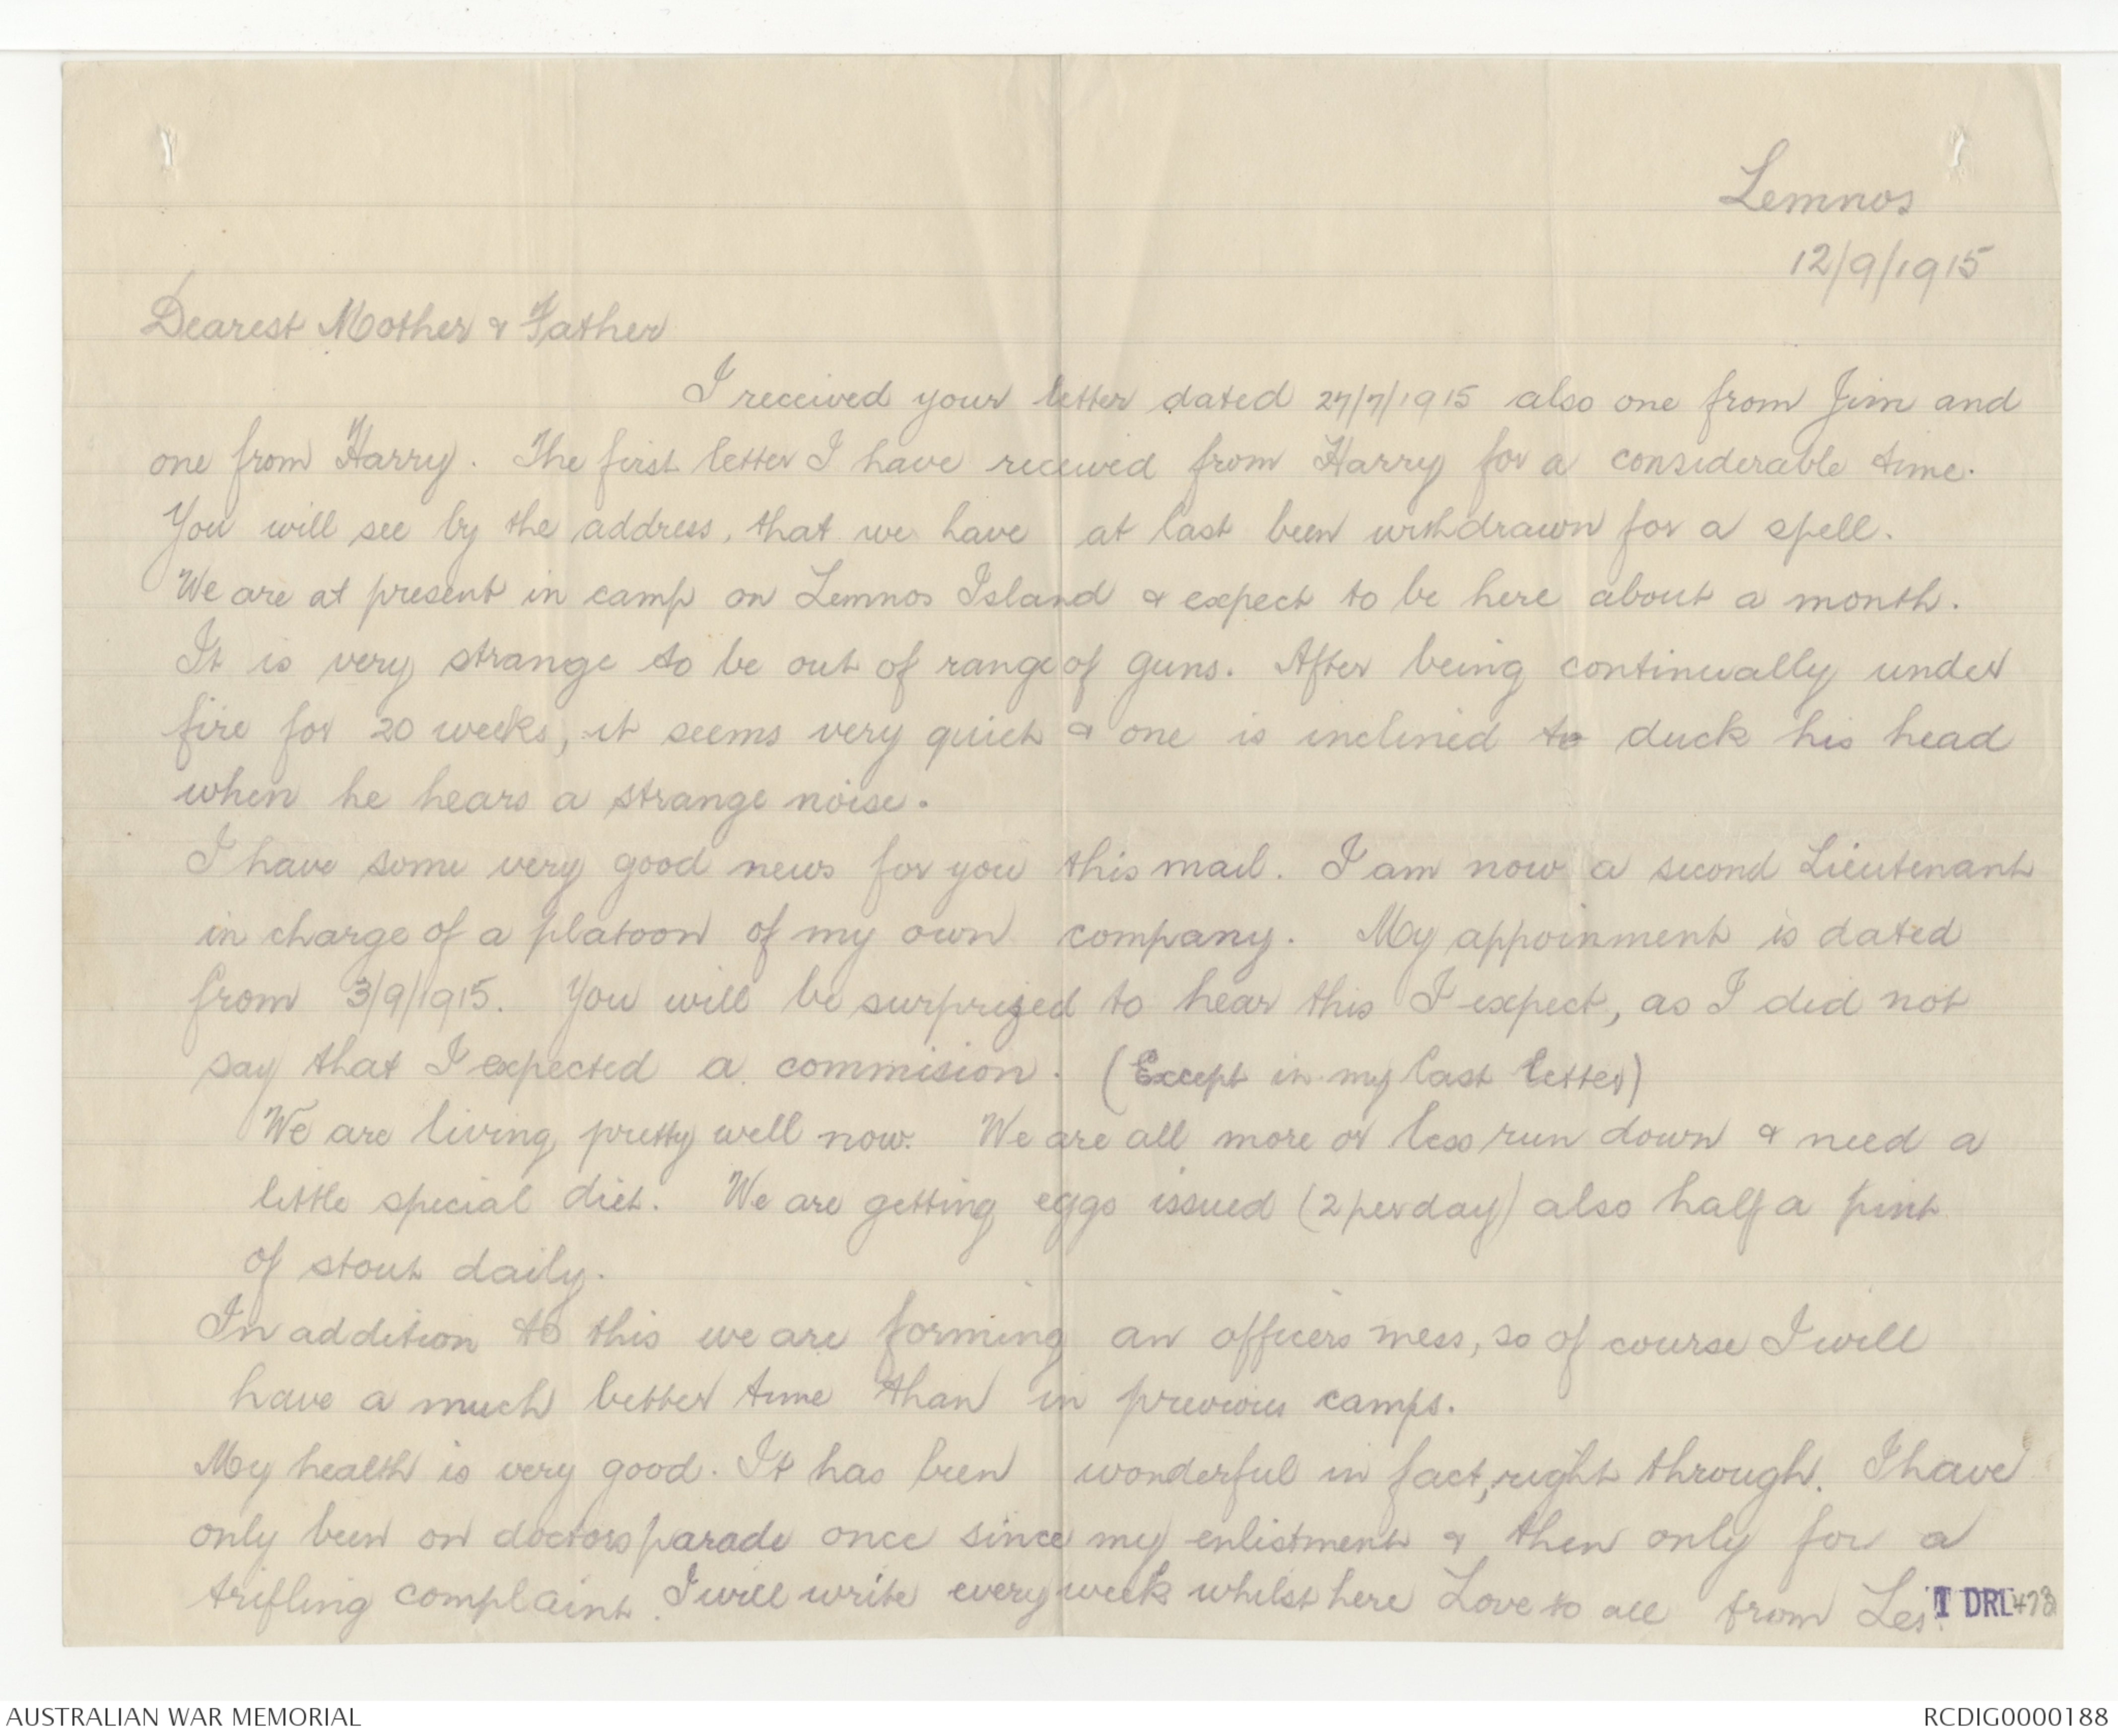 Lemnos
12/9/1915
Dearest Mother & Father
I received your letter dated 27/7/1915 also one from Jim and
one from Harry. The first letter I have received from Harry for a considerable time.
You will see by the address, that we have at last been withdrawn for a spell.
We are at present in camp on Lemnos Island & expect to be here about a month.
It is very strange to be out of range of guns. After being continually under
fire for 20 weeks, it seems very quiet & one is inclined to duck his head
when he hears a strange noise.
I have some very good news for you this mail. I am now a second Lieutenant
in charge of a platoon of my own company. My appoinment is dated
from 3/9/1915. You will be surprized to hear this I expect, as I did not
say that I expected a commision. (Except in my last letter)
We are living pretty well now. We are all more or less run down & need a
little special diet. We are getting eggs issued (2 per day) also half a pint
of stout daily.
In addition to this we are forming an officers mess, so of course I will
have a much better time than in previous camps.
My health is very good. It has been wonderful in fact, right through. I have
only been on doctors parade once since my enlistment & then only for a
trifling complaint. I will write every week whilst here Love to all from Les.
1 DRL 473
AUSTRALIAN WAR MEMORIAL
RCDIG0000188